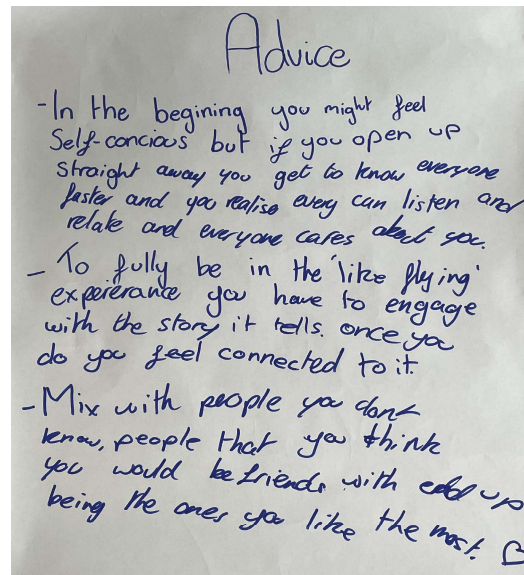 Advice
- In the begining you might feel
Self-concious but if you open up
straight away you get to know everyone
faster and you realise every can listen and
relate and everyone cares about you.
- To fully be in the 'like flying'
expererance you have to engage
with the story it tells. once you
do you feel connected to it.
- Mix with people you dont
know, people that you think
you would be friends with end up
being the ones you like the most.